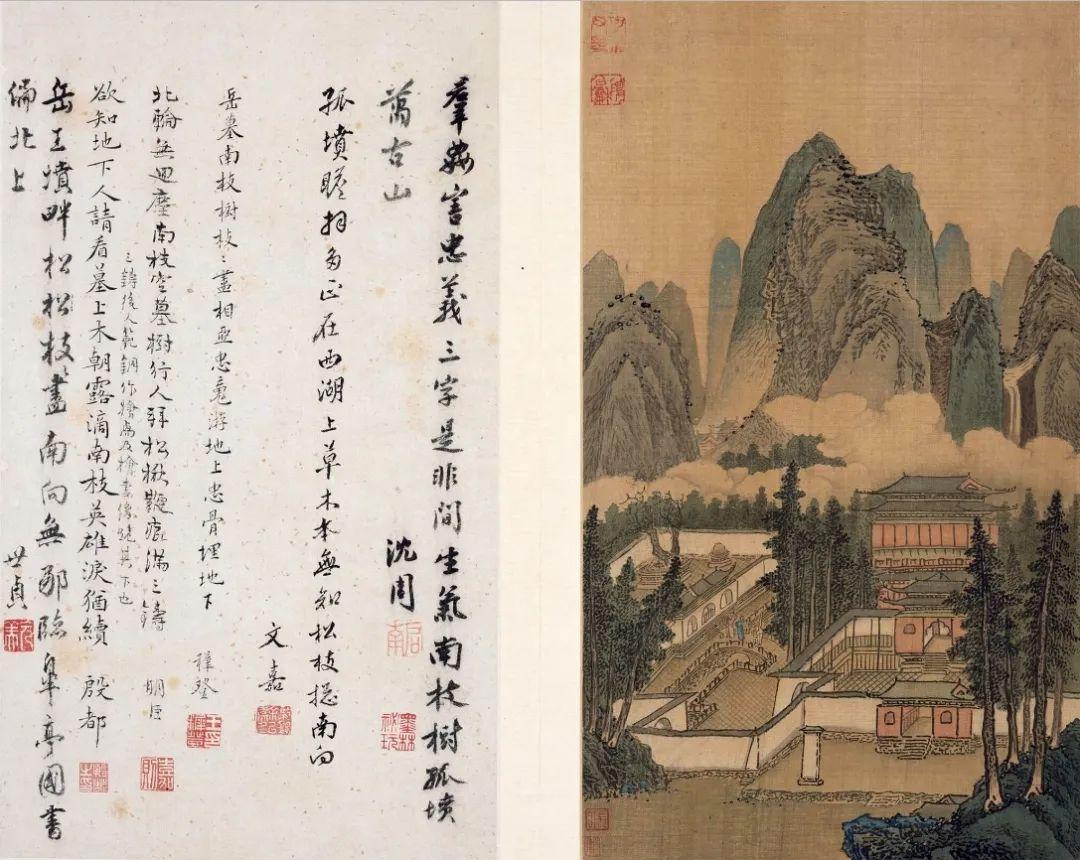 羣姦害忠義三字是非間生氣南枝樹孤墳
萬古山 沈周
啓南
墨林秘玩
孤墳瞻拜多正在西湖上草木本無知松枝摠南向
文嘉
岳墓南枝樹枝〻盡相亞忠魂游地上忠骨埋地下
穉登
北轅無迴塵南枝空墓樹行人拜松楸鞭痕滿三鑄 明臣
嘉則
三鑄後人範銅作檜卨及檜妻像跪其下也
欲知地下人請看墓上木朝露滴南枝英雄淚猶續 殷都
岳王墳畔松松枝盡南向無那臨皐亭國書
偏北上 世貞
元美